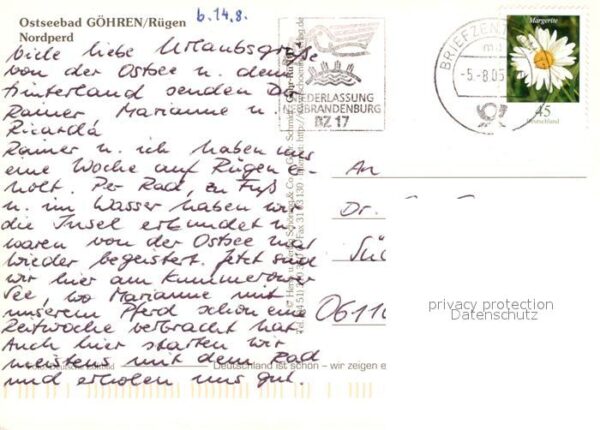 Ostseebad GÖHREN/Rügen
Nordperd
b. 14.8.
viele liebe Urlaubsgrüße
von der Ostsee u. dem
Hinterland senden Dir
Rainer Marianne u.
Ricarda
Rainer u. ich haben uns
eine Woche auf Rügen er-
holt. Per Rad, zu Fuß
u. im Wasser haben wir
die Insel erkundet u.
waren von der Ostsee mal
wieder begeistert. Jetzt sind
wir hier am Kummerower
See, wo Marianne mit
unserem Pferd schon eine
Reitwoche verbracht hat.
Auch hier starten wir
meistens mit dem Rad
und erholen uns gut.
Deutschland ist schön – wir zeigen e
NIEDERLASSUNG
BRANDENBURG
BZ 17
BRIEFZEN
-5.-8.05
Margerite
45
Deutschland
An
Dr.
Sü
06110
privacy protection
Datenschutz